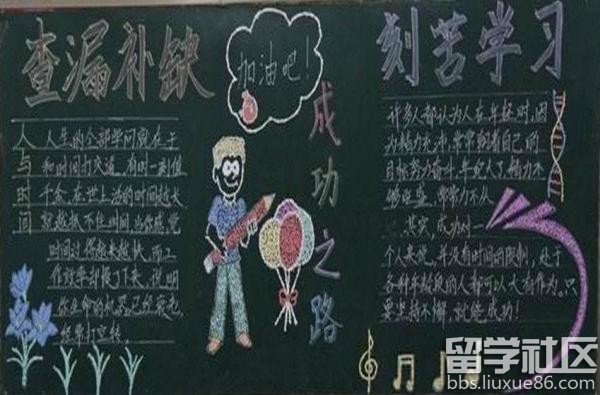 查漏补缺
加油吧!
刻苦学习
成功之路
人与时间
人生的全部学问就在于
和时间打交道。有时一刻值
千金,在世上活的时间越长
越抵不住时间,当你感觉
时间过得越来越快,而工
作效率却慢了下来,说明
你生命的机器已经衰老,
经常打空转。
许多人都认为人在年轻时,因
为精力充沛,常常朝着自己的
目标努力奋斗,年纪大了,精力不
够旺盛,常常力不从
其实,成功对一
个人来说,并没有时间的限制,处于
各种年龄段的人都可以大有作为。只
要坚持不懈,就能成功!
留学社区
bbs.liuxue86.com